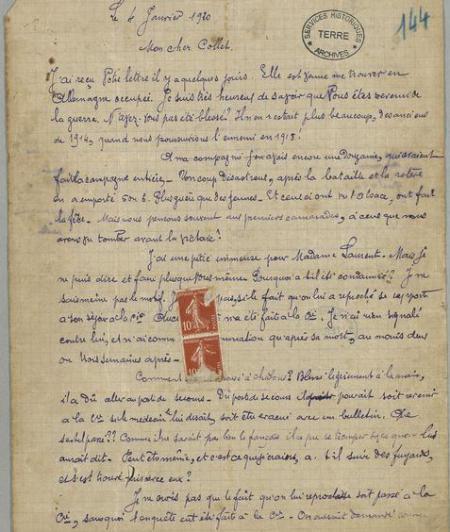 Le 4 Janvier 1920
SERVICES HISTORIQUES
TERRE
ARCHIVES
144
Mon cher Collet.
J'ai reçu lettre il y a quelques jours. Elle est venue me trouver en
Allemagne occupée. Je suis très heureux de savoir que Vous êtes revenu de
la guerre. N'avez-vous pas été blessé? Il n'en restait plus beaucoup, des anciens
de 1914, quand nous poursuivions l'ennemi en 1918!
A ma compagnie j'en avais encore une douzaine, qui avaient
fait la campagne entière. Un coup désastreux, après la bataille et la
en a emporté 5 ou 6. Plus que des jeunes. Et ceux-ci ont vu l'Alsace, ont fait
la fête. Mais nous pensons souvent aux premiers camarades, à ceux que nous
avons vu tomber avant la victoire!
J'ai une pitié immense pour Madame Laurent. Mais je
ne puis dire et faire plus que Vous même. Pourquoi a-t-il été condamné? Je ne
sais même pas le motif. pas, si le fait qu'on lui a reproché se rapporte
à son séjour à la Cie. m'a été fait à la Cie. Je n'ai rien signalé
contre lui, et n'ai connu qu'après sa mort, au moins deux
ou trois semaines après.
Comment Blessé légèrement à la main,
il a dû aller au poste de secours. Du poste de secours il pouvait soit revenir
à la Cie si le médecin lui disait, soit être évacué avec un bulletin. Que
s'est-il passé?? Comme il ne savait pas bien le français il a pu se tromper sur ce qu'on lui
aurait dit. Peut être même, et c'est ce que je crois, a-t-il suivi des fuyards,
et s'est trouvé avec eux?
Je ne crois pas que le fait qu'on lui reproche se soit passé à la
Cie, sans quoi l'enquête eut été faite à la Cie. On aurait demandé
10
10